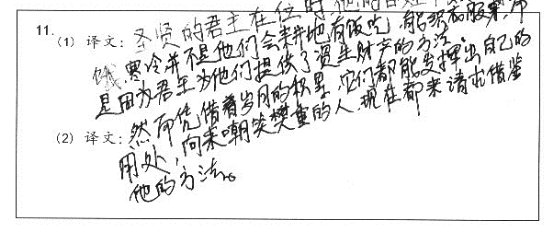 11.
(1) 译文：圣贤的君主在位时他的百姓不
饿寒冷并不是他们会耕地有饭吃，能织衣服来
是因为君王为他们提供了资生财产的方法。
(2) 译文：然而凭借着岁月的积累，它们都能发挥出自己的
用处，向来嘲笑樊重的人现在都来请求借鉴
他的方法。